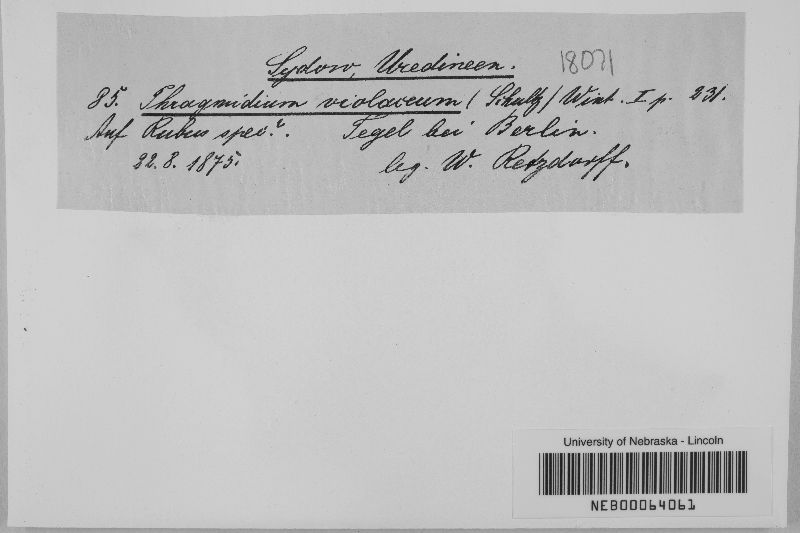 Sydow, Uredineen.
18071
85. Phragmidium violaceum (Schultz) Wint. I p. 231.
Auf Rubus spec. Tegel bei Berlin.
22. 8. 1875.
leg. W. Retzdorff.
University of Nebraska - Lincoln
NEB00064061